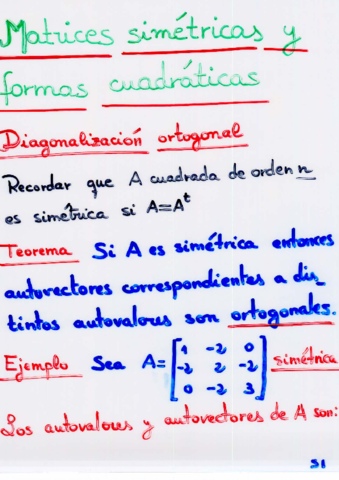 Matrices simétricas y
formas cuadráticas
Diagonalización ortogonal
Recordar que A cuadrada de orden n
es simétrica si A=Aᵗ
Teorema Si A es simétrica entonces
autovectores correspondientes a dis
tintos autovalores son ortogonales.
Ejemplo Sea A= [1 -2 0
-2 2 -2
0 -2 3] simétrica
Los autovalores y autovectores de A son:
51